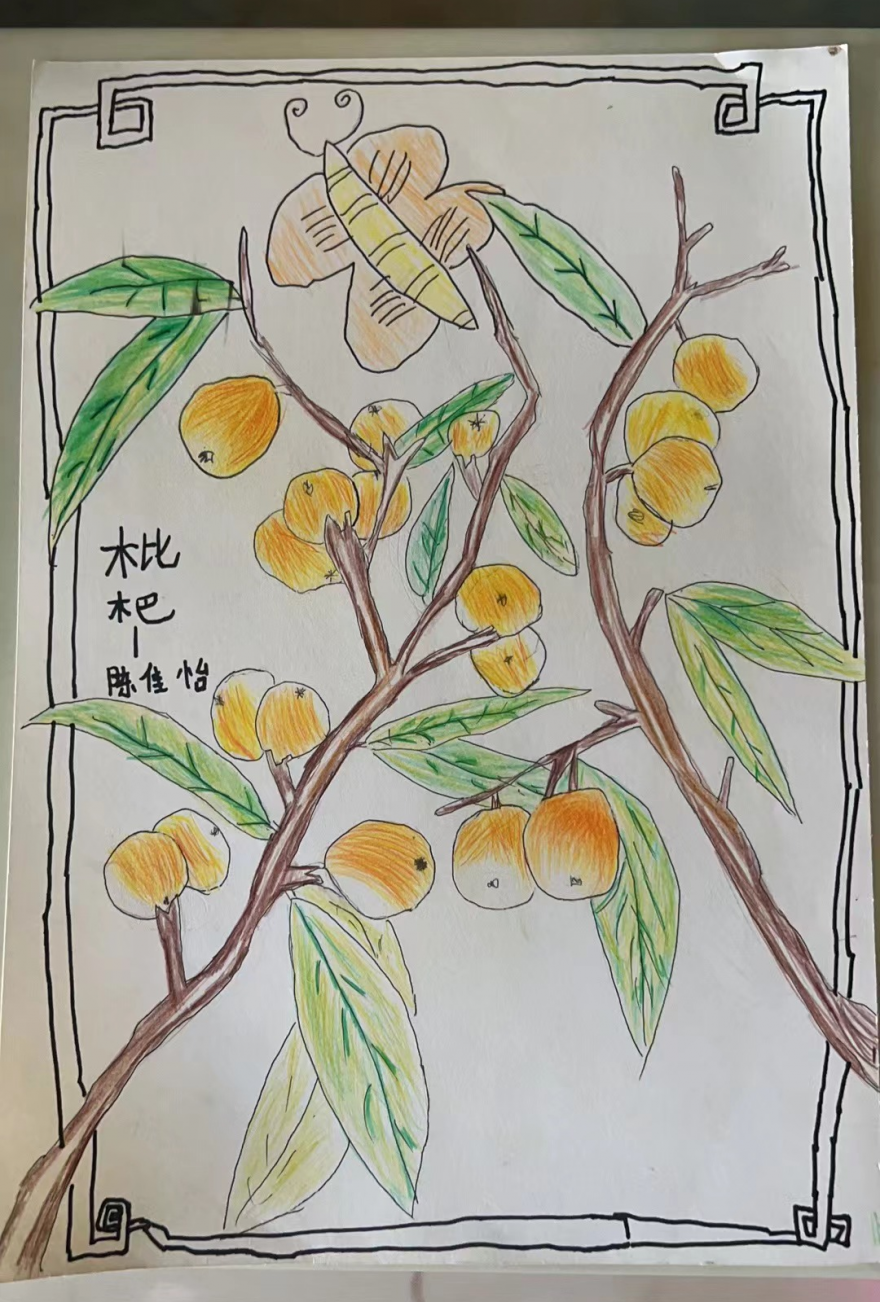 枇
杷
|
陈佳怡